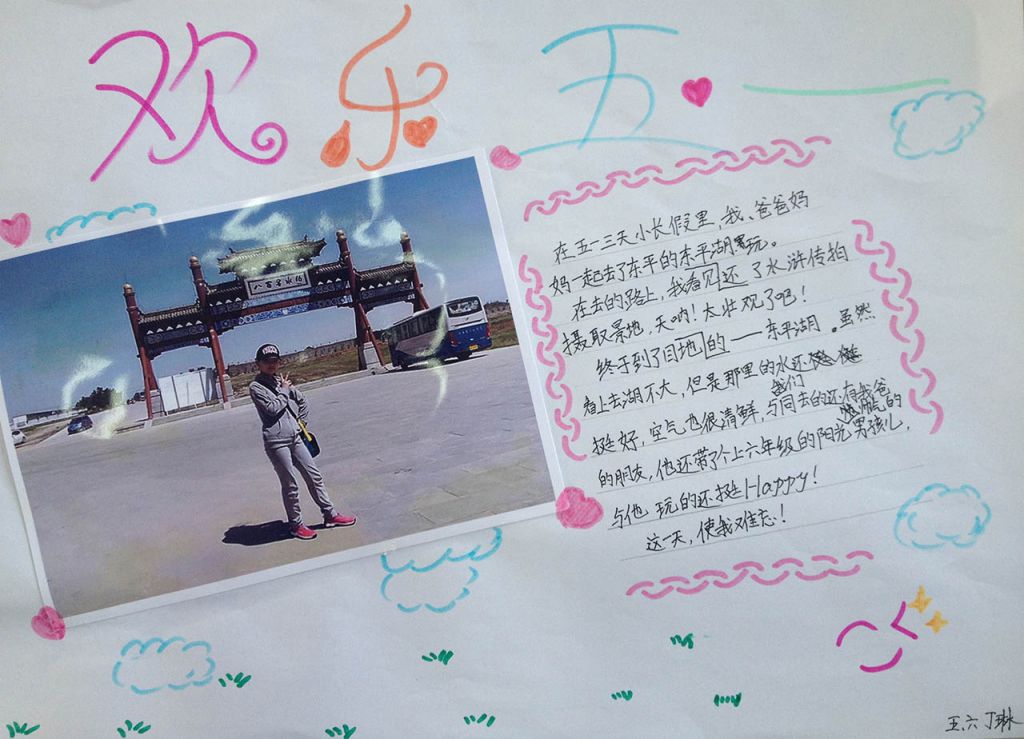 欢乐五一
八百里水泊
在五一三天小长假里,我、爸爸妈
妈一起去了东平的东平湖里玩。
在去的路上,我看见还了水浒传拍
摄取景地,天呐!太壮观了吧!
终于到了目地的——东平湖。虽然
看上去湖不大,但是那里的水还
挺好,空气也很清鲜,与我们同去的还有我爸
的朋友,他还带了个上六年级的阳光帅气的男孩儿,
与他玩的还挺Happy!
这一天,使我难忘!
五、六 丁琳